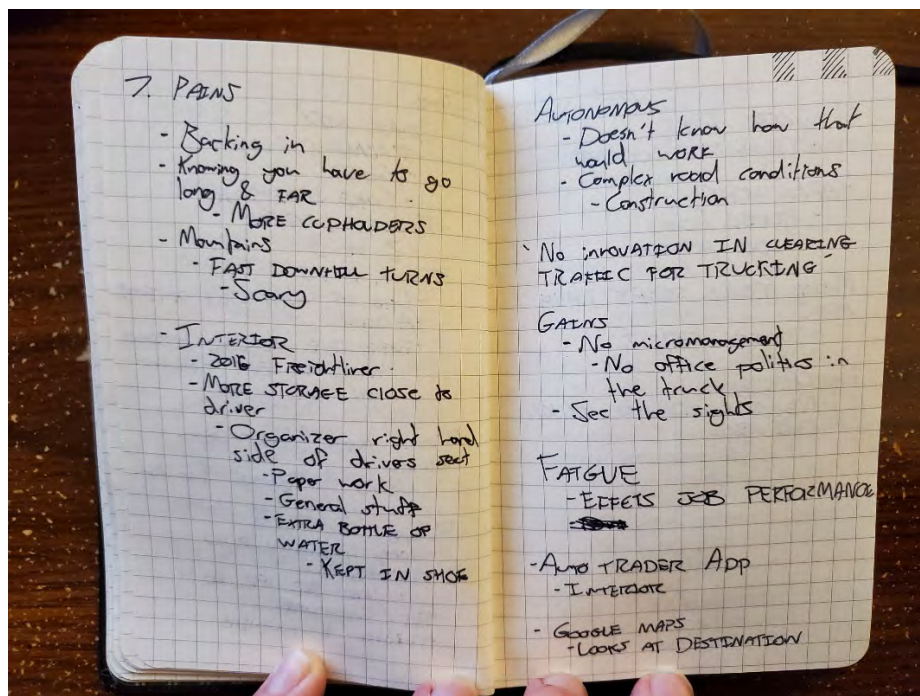 7. PAINS
- Backing in
- Knowing you have to go
long & FAR
- MORE CUPHOLDERS
- Mountains
- FAST DOWNHILL TURNS
- Scary
- INTERIOR
- 2016 Freightliner
- MORE STORAGE close to
driver
- Organizer right hand
side of drivers seat
- Paper work
- General stuff
- EXTRA BOTTLE OF
WATER
- KEPT IN SHOE
AUTONOMOUS
- Doesn't know how that
would WORK
- Complex road conditions
- Construction
"No innovation IN CLEARING
TRAFFIC FOR TRUCKING"
GAINS
- No micromanagement
- No office politics in
the truck
- See the sights
FATGUE
- EFFETS JOB PERFORMANCE
- AUTO TRADER App
- INTERIOR
- GOOGLE MAPS
- LOOKS AT DESTINATION